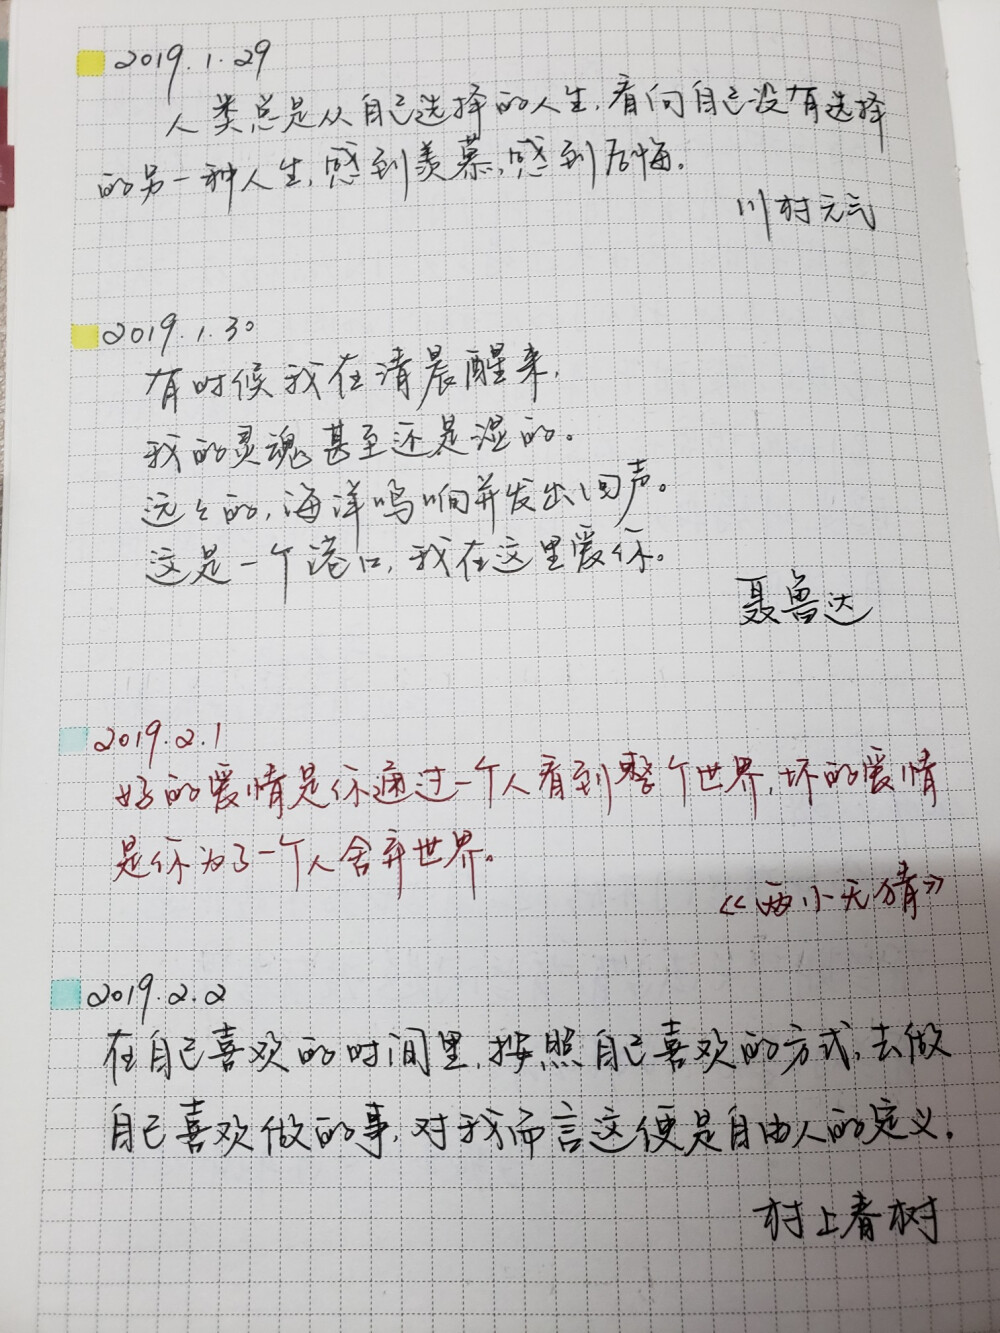 2019.1.29
人类总是从自己选择的人生,看向自己没有选择
的另一种人生,感到羡慕,感到后悔。
川村元气
2019.1.30
有时候我在清晨醒来,
我的灵魂甚至还是湿的。
远远的,海洋鸣响并发出回声。
这是一个港口,我在这里爱你。
聂鲁达
2019.2.1
好的爱情是你通过一个人看到整个世界,坏的爱情
是你为了一个人舍弃世界。
《两小无猜》
2019.2.2
在自己喜欢的时间里,按照自己喜欢的方式,去做
自己喜欢做的事,对我而言这便是自由人的定义。
村上春树